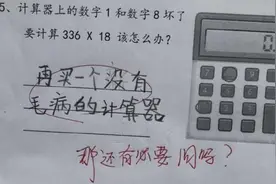 5、计算器上的数字1和数字8坏了
要计算336 X 18该怎么办?
再买一个没有
毛病的计算器
那还有必要问吗?